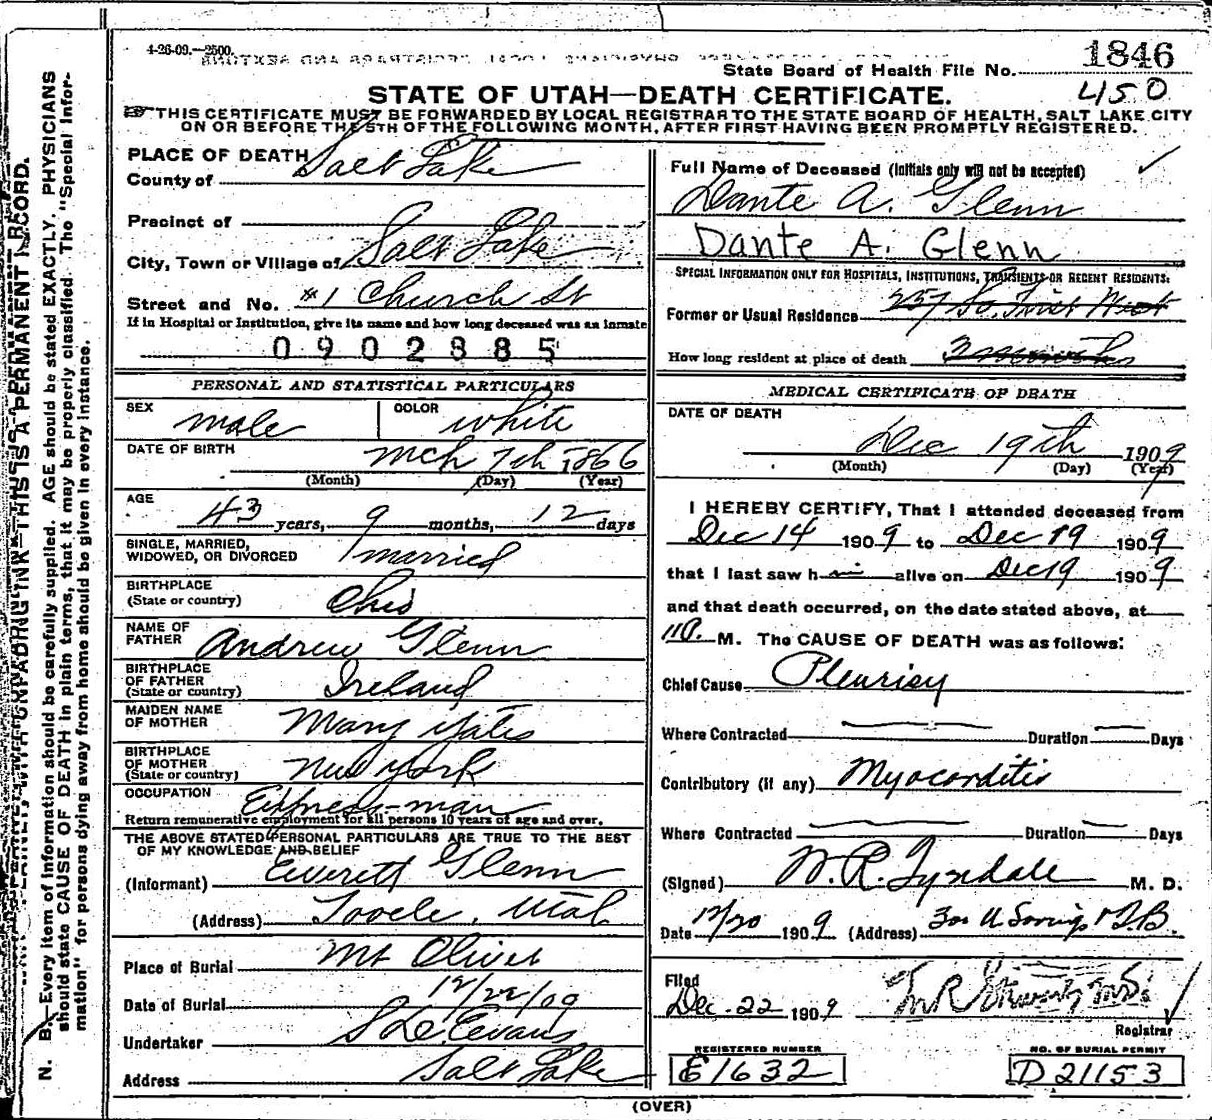 4-26-09.—2500.
State Board of Health File No. 1846
450
STATE OF UTAH—DEATH CERTIFICATE.
THIS CERTIFICATE MUST BE FORWARDED BY LOCAL REGISTRAR TO THE STATE BOARD OF HEALTH, SALT LAKE CITY
ON OR BEFORE THE 5TH OF THE FOLLOWING MONTH, AFTER FIRST HAVING BEEN PROMPTLY REGISTERED.
N. B. Every item of information should be carefully supplied. AGE should be stated EXACTLY. PHYSICIANS
should state CAUSE OF DEATH in plain terms, that it may be properly classified. The "Special Infor-
mation" for persons dying away from home should be given in every instance.
THIS IS A PERMANENT RECORD.
PLACE OF DEATH
County of Salt Lake
Precinct of
City, Town or Village of Salt Lake
Street and No. #1 Church St
If in Hospital or Institution, give its name and how long deceased was an inmate
0902885
PERSONAL AND STATISTICAL PARTICULARS
SEX male COLOR white
DATE OF BIRTH mch 7th 1866
(Month) (Day) (Year)
AGE 43 years, 9 months, 12 days
SINGLE, MARRIED,
WIDOWED, OR DIVORCED married
BIRTHPLACE
(State or country) Ohio
NAME OF
FATHER Andrew Glenn
BIRTHPLACE
OF FATHER
(State or country) Ireland
MAIDEN NAME
OF MOTHER Mary Yates
BIRTHPLACE
OF MOTHER
(State or country) New York
OCCUPATION Express-man
Return remunerative employment for all persons 10 years of age and over.
THE ABOVE STATED PERSONAL PARTICULARS ARE TRUE TO THE BEST
OF MY KNOWLEDGE AND BELIEF
(Informant) Everett Glenn
(Address) Tooele, Utah
Place of Burial Mt Olivet
Date of Burial 12/22/09
Undertaker Evans
Address Salt Lake
Full Name of Deceased (Initials only will not be accepted)
Dante A. Glenn
Dante A. Glenn
SPECIAL INFORMATION ONLY FOR HOSPITALS, INSTITUTIONS, TRANSIENTS OR RECENT RESIDENTS:
Former or Usual Residence 257 So. First West
How long resident at place of death 3 months
MEDICAL CERTIFICATE OF DEATH
DATE OF DEATH
Dec 19th 1909
(Month) (Day) (Year)
I HEREBY CERTIFY, That I attended deceased from
Dec 14 1909 to Dec 19 1909
that I last saw him alive on Dec 19 1909
and that death occurred, on the date stated above, at
11 P. M. The CAUSE OF DEATH was as follows:
Chief Cause Pleurisy
Where Contracted Duration Days
Contributory (if any) Myocorditis
Where Contracted Duration Days
(Signed) W. R. Tyndale M. D.
Date 12/20 1909 (Address)
Filed
Dec. 22 1909
Registrar
REGISTERED NUMBER
E1632
NO. OF BURIAL PERMIT
D21153
(OVER)